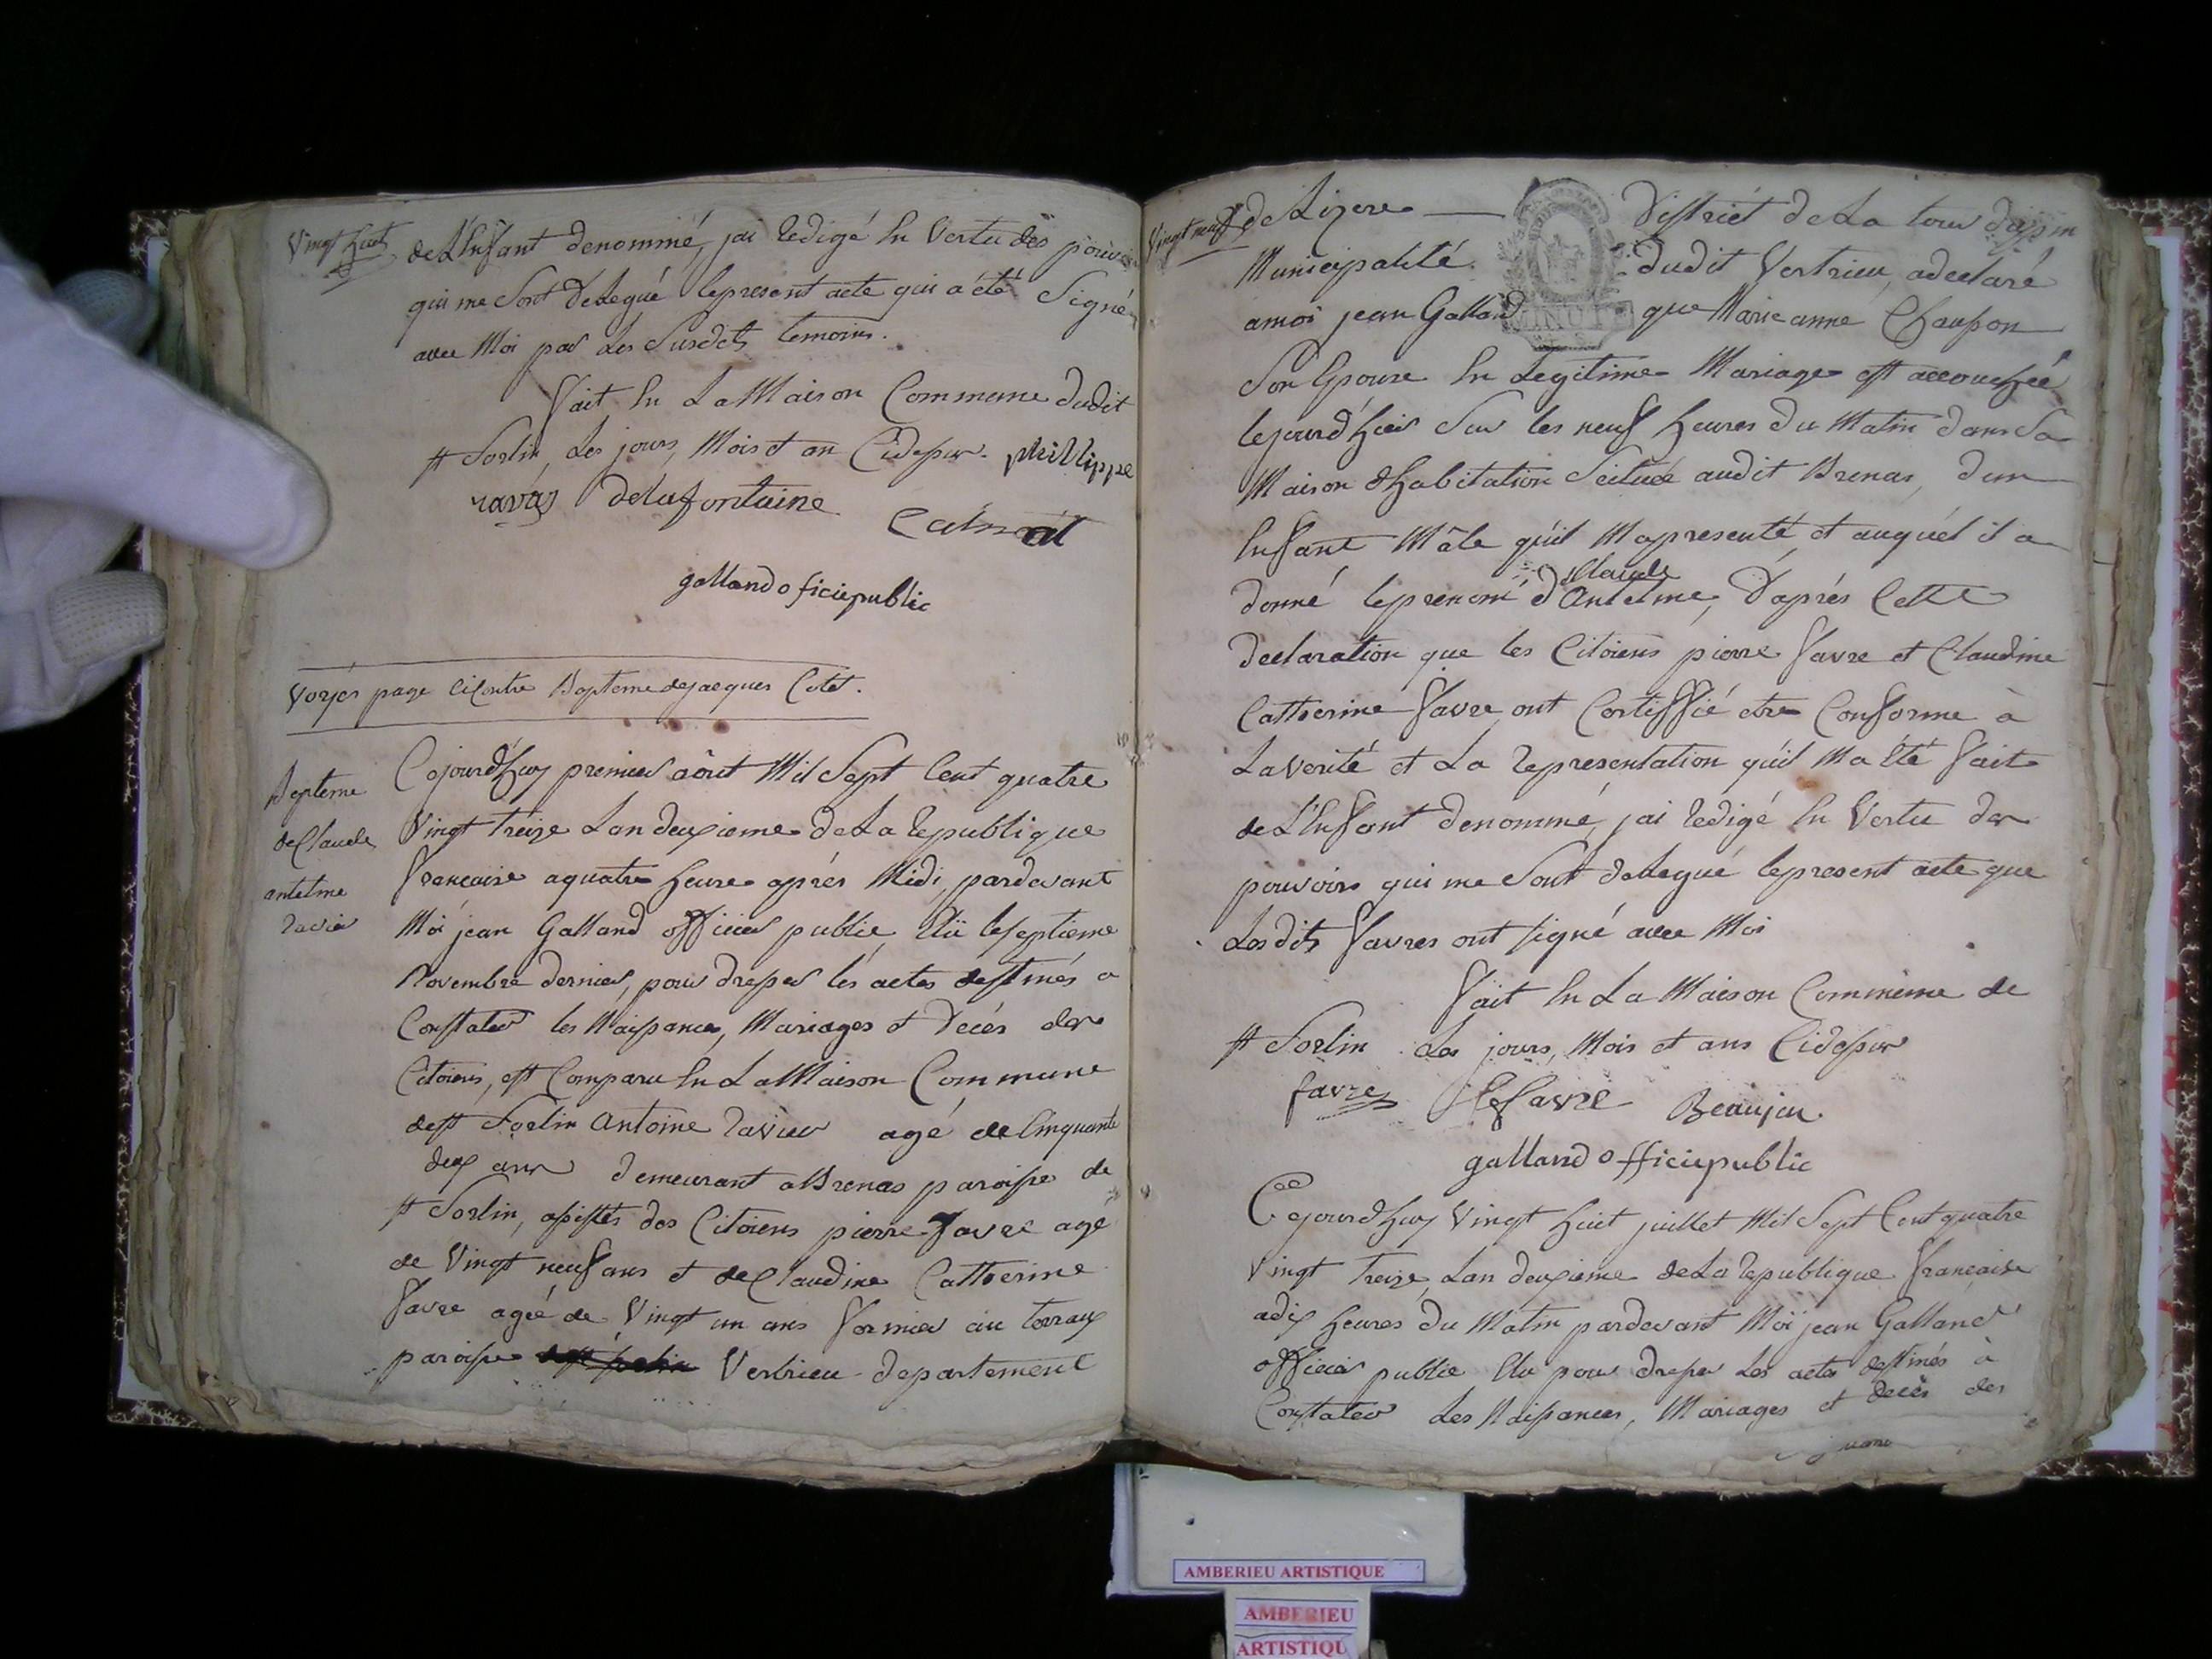 Vingt huit
de L'Enfant denommé, jai redigé En Vertu des pouvoirs
qui me Sont delegué le present acte qui a été Signé
avec Moi par Les Susdits temoins.
fait En La Maison Commune dudit
st Sorlin, Les jours, Mois et an Cidessus. phillippe
ravas delafontaine
galland oficiepublic
Voyés page Cicontre Bapteme de jacques
Bapteme
de Claude
antelme
ravier
Cejourd'huy premier août Mil Sept Cent quatre
Vingt treize Lan deuxieme de La republique
francaise a quatre heure aprés Midi, pardevant
Moi jean Galland officier public Elû le septieme
Novembre dernier, pour dresser les actes destinés a
Constater les Naissances, Mariages et Decés des
Citoiens, est Comparu En La Maison Commune
de st Sorlin Antoine Ravier agé de Cinquante
deux ans demeurant a Brenas paroisse de
st Sorlin, assistés des Citoiens pierre favre agé
de Vingt neuf ans et de Claudine Catherine
favre agée de Vingt un ans fermier au terraux
paroisse Vertrieu departement
Vingt neuf
de Lizere District de La tour dupin
Municipalité dudit Vertrieu, a declaré
a moi jean Galland que Marie anne Chaupon
Son Epouse En Legitime Mariage est accouchée
le jourd'hier Sur les neuf heures du Matin dans Sa
Maison d'habitation Scituée audit Brenas, d'un
Enfant Mâle qu'il M'a presenté, et auquel il a
Claude
donné le prenom d'Antelme, D'aprés Cette
declaration que les Citoiens pierre favre et Claudine
Catherine favre ont Certiffié etre Conforme à
La Verité et La representation qu'il M'a Eté fait
de L'Enfant denommé, jai redigé En Vertu des
pouvoirs qui me Sont delegué le present acte que
Les dits favres ont signé avec Moi
fait En La Maison Commune de
st Sorlin Les jours, Mois et ans Cidessus
favre Beaujeu
galland officiepublic
Cejourd'huy Vingt huit juillet Mil Sept Cent quatre
Vingt treize, Lan deuxieme de La republique francaise
a dix heures du Matin pardevant Moi jean Galland
officier public Elu pour dresser Les actes destinés à
Constater Les Naissances, Mariages et decés des
AMBERIEU ARTISTIQUE
AMBERIEU
ARTISTIQU